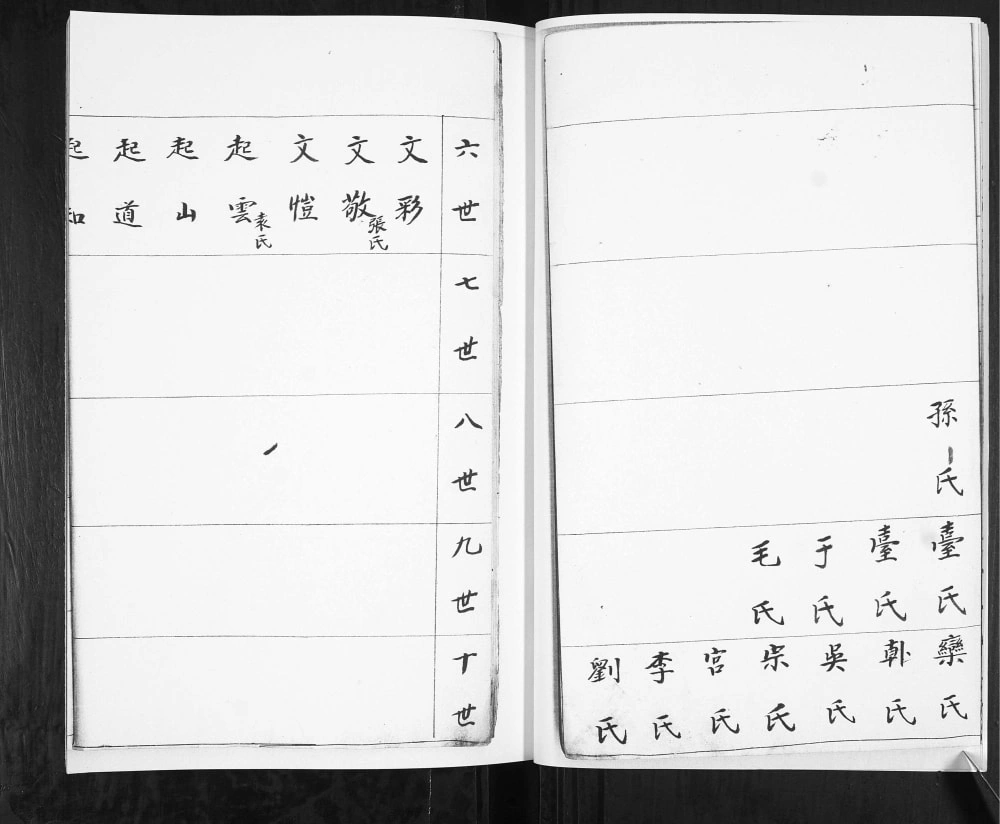 孫氏
臺氏
臺氏
于氏
毛氏
欒氏
氏
吳氏
氏
宮氏
李氏
劉氏
六世
文彩
文敬
張氏
文愷
起雲
袁氏
起山
起道
起知
七世
八世
九世
十世